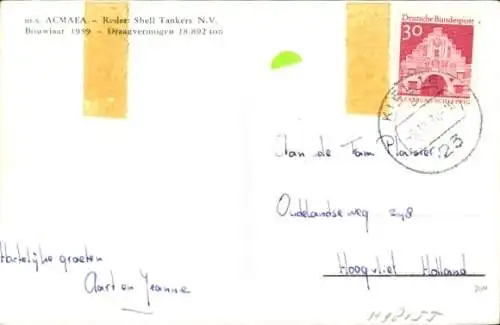 m.s. ACMAEA. - Reder: Shell Tankers N.V.
Bouwjaar 1959 - Draagvermogen 18.892 ton
30
Deutsche Bundespost
FLENSBURG/SCHLESWIG
KIEL
23
Aan de Fam Plaisier
Oudelandseweg 298
Hoogvliet Holland
Hartelijke groeten
Aart en Jeanne